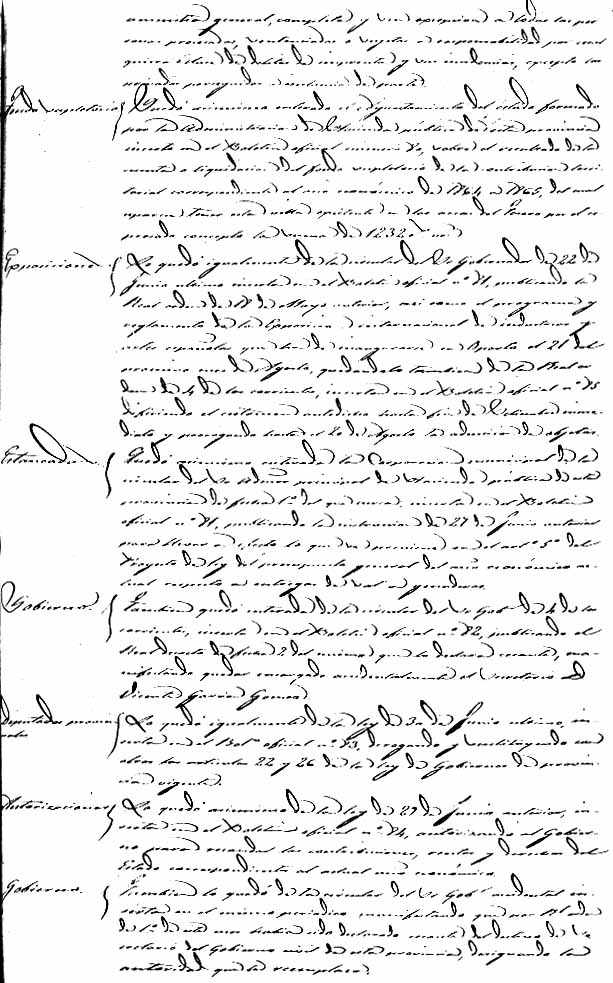 amnistia general, completa y sin excepcion a todas las per-
sonas procesadas, sentenciadas o sugetas a responsabilidad por cual
quiera clase de delitos de imprenta
Fondo supletorio Quedó asimismo enterado el Ayuntamiento del estado formado
por la Administracion de Hacienda pública de esta provincia
inserto en el Boletin oficial numero 80, sobre el resultado de la
cuenta o liquidacion del fondo supletorio de la contribucion terri-
torial correspondiente al año económico de 1864 a 1865, del cual
aparece tener esta villa en las arcas del Tesoro por el es-
presado concepto la suma de
Exposiciones Lo quedó igualmente de la circular del Sr. Gobernador de 22 de
Junio ultimo inserta en el Boletin oficial nº 71, publicando la
Real orden de de Mayo anterior, asi como el programa y
reglamento de la Exposicion internacional de industrias y
artes españolas que ha de inaugurarse en el 21 del
procsimo mes de Agosto, quedandolo tambien de la Real or-
den de 4 de los corrientes, inserta en el Boletin oficial nº 75
difiriendo el hasta fin de Setiembre inme-
diato y prorogando hasta el 20 de Agosto la admision de objetos.
Estancadas Quedó asimismo enterada la Corporacion municipal de la
circular del Sr. principal de Hacienda pública de esta
provincia de fecha 1º del que cursa, inserta en el Boletin
oficial nº 71, publicando la instruccion de 27 de Junio anterior
para llevar a efecto lo que se previene en el artº 5º del
Proyecto de ley del presupuesto general del año económico ac-
tual respecto a entregas de sal a ganaderos.
Gobierno. Tambien quedó enterado de la circular del Sr. Gobr. de 4 de los
corrientes, inserta en el Boletin oficial nº 72, publicando el
Real decreto de fecha 2 del mismo que le declara cesante, ma-
nifestando quedar encargado accidentalmente el Secretario D
Vicente Garcia Gomez
Diputados provin-
ciales Lo quedó igualmente de la ley de 30 de Junio ultimo, in-
serta en el Boln. oficial nº 73, derogando y sustituyendo con
otros los articulos 22 y 26 de la ley de Gobiernos de provin-
cia vigente.
Autorizaciones Lo quedó asimismo de la ley de 27 de Junio anterior, in-
serta en el Boletin oficial nº 74, autorizando al Gobier-
no para recaudar las contribuciones, rentas y derechos del
Estado correspondientes al actual año económico.
Gobierno. Tambien lo quedó de la circular del Sr. Gobr. accidental in-
serta en el mismo periodico, manifestando que por Rl. orden
de 1º de este mes habia sido declarado cesante del destino de Se-
cretario del Gobierno civil de esta provincia, designando la
autoridad que le reemplaza.